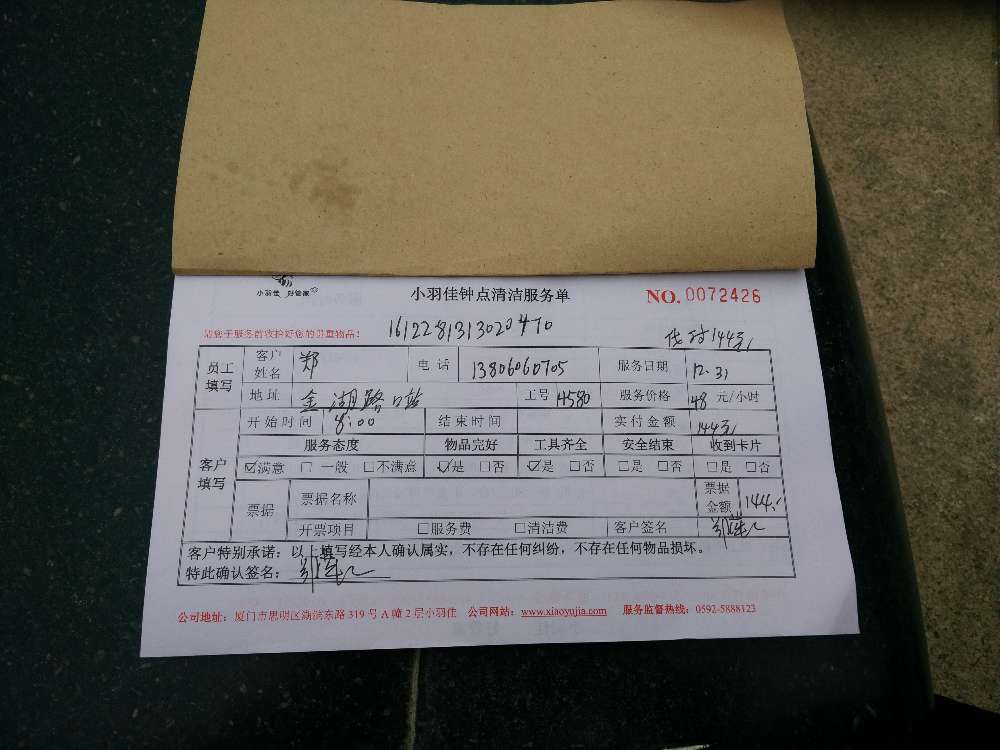 小羽佳 好管家
小羽佳钟点清洁服务单
NO. 0072426
请您于服务前收拾好您的贵重物品!
1612281313020470
144元
员工填写 客户姓名 郑 电话 13806060705 服务日期 12.31
地址 金湖路口站 工号 14580 服务价格 48 元/小时
客户填写 开始时间 8:00 结束时间 实付金额 144元
服务态度 物品完好 工具齐全 安全结束 收到卡片
☑满意 □一般 □不满点 ☑是 □否 ☑是 □否 □是 □否 □是 □否
票据 票据名称 票据金额 144.
开票项目 □服务费 □清洁费 客户签名
客户特别承诺:以上填写经本人确认属实,不存在任何纠纷,不存在任何物品损坏。
特此确认签名:
公司地址:厦门市思明区湖滨东路 319 号 A 幢 2 层小羽佳 公司网站:www.xiaoyujia.com 服务监督热线:0592-5888123